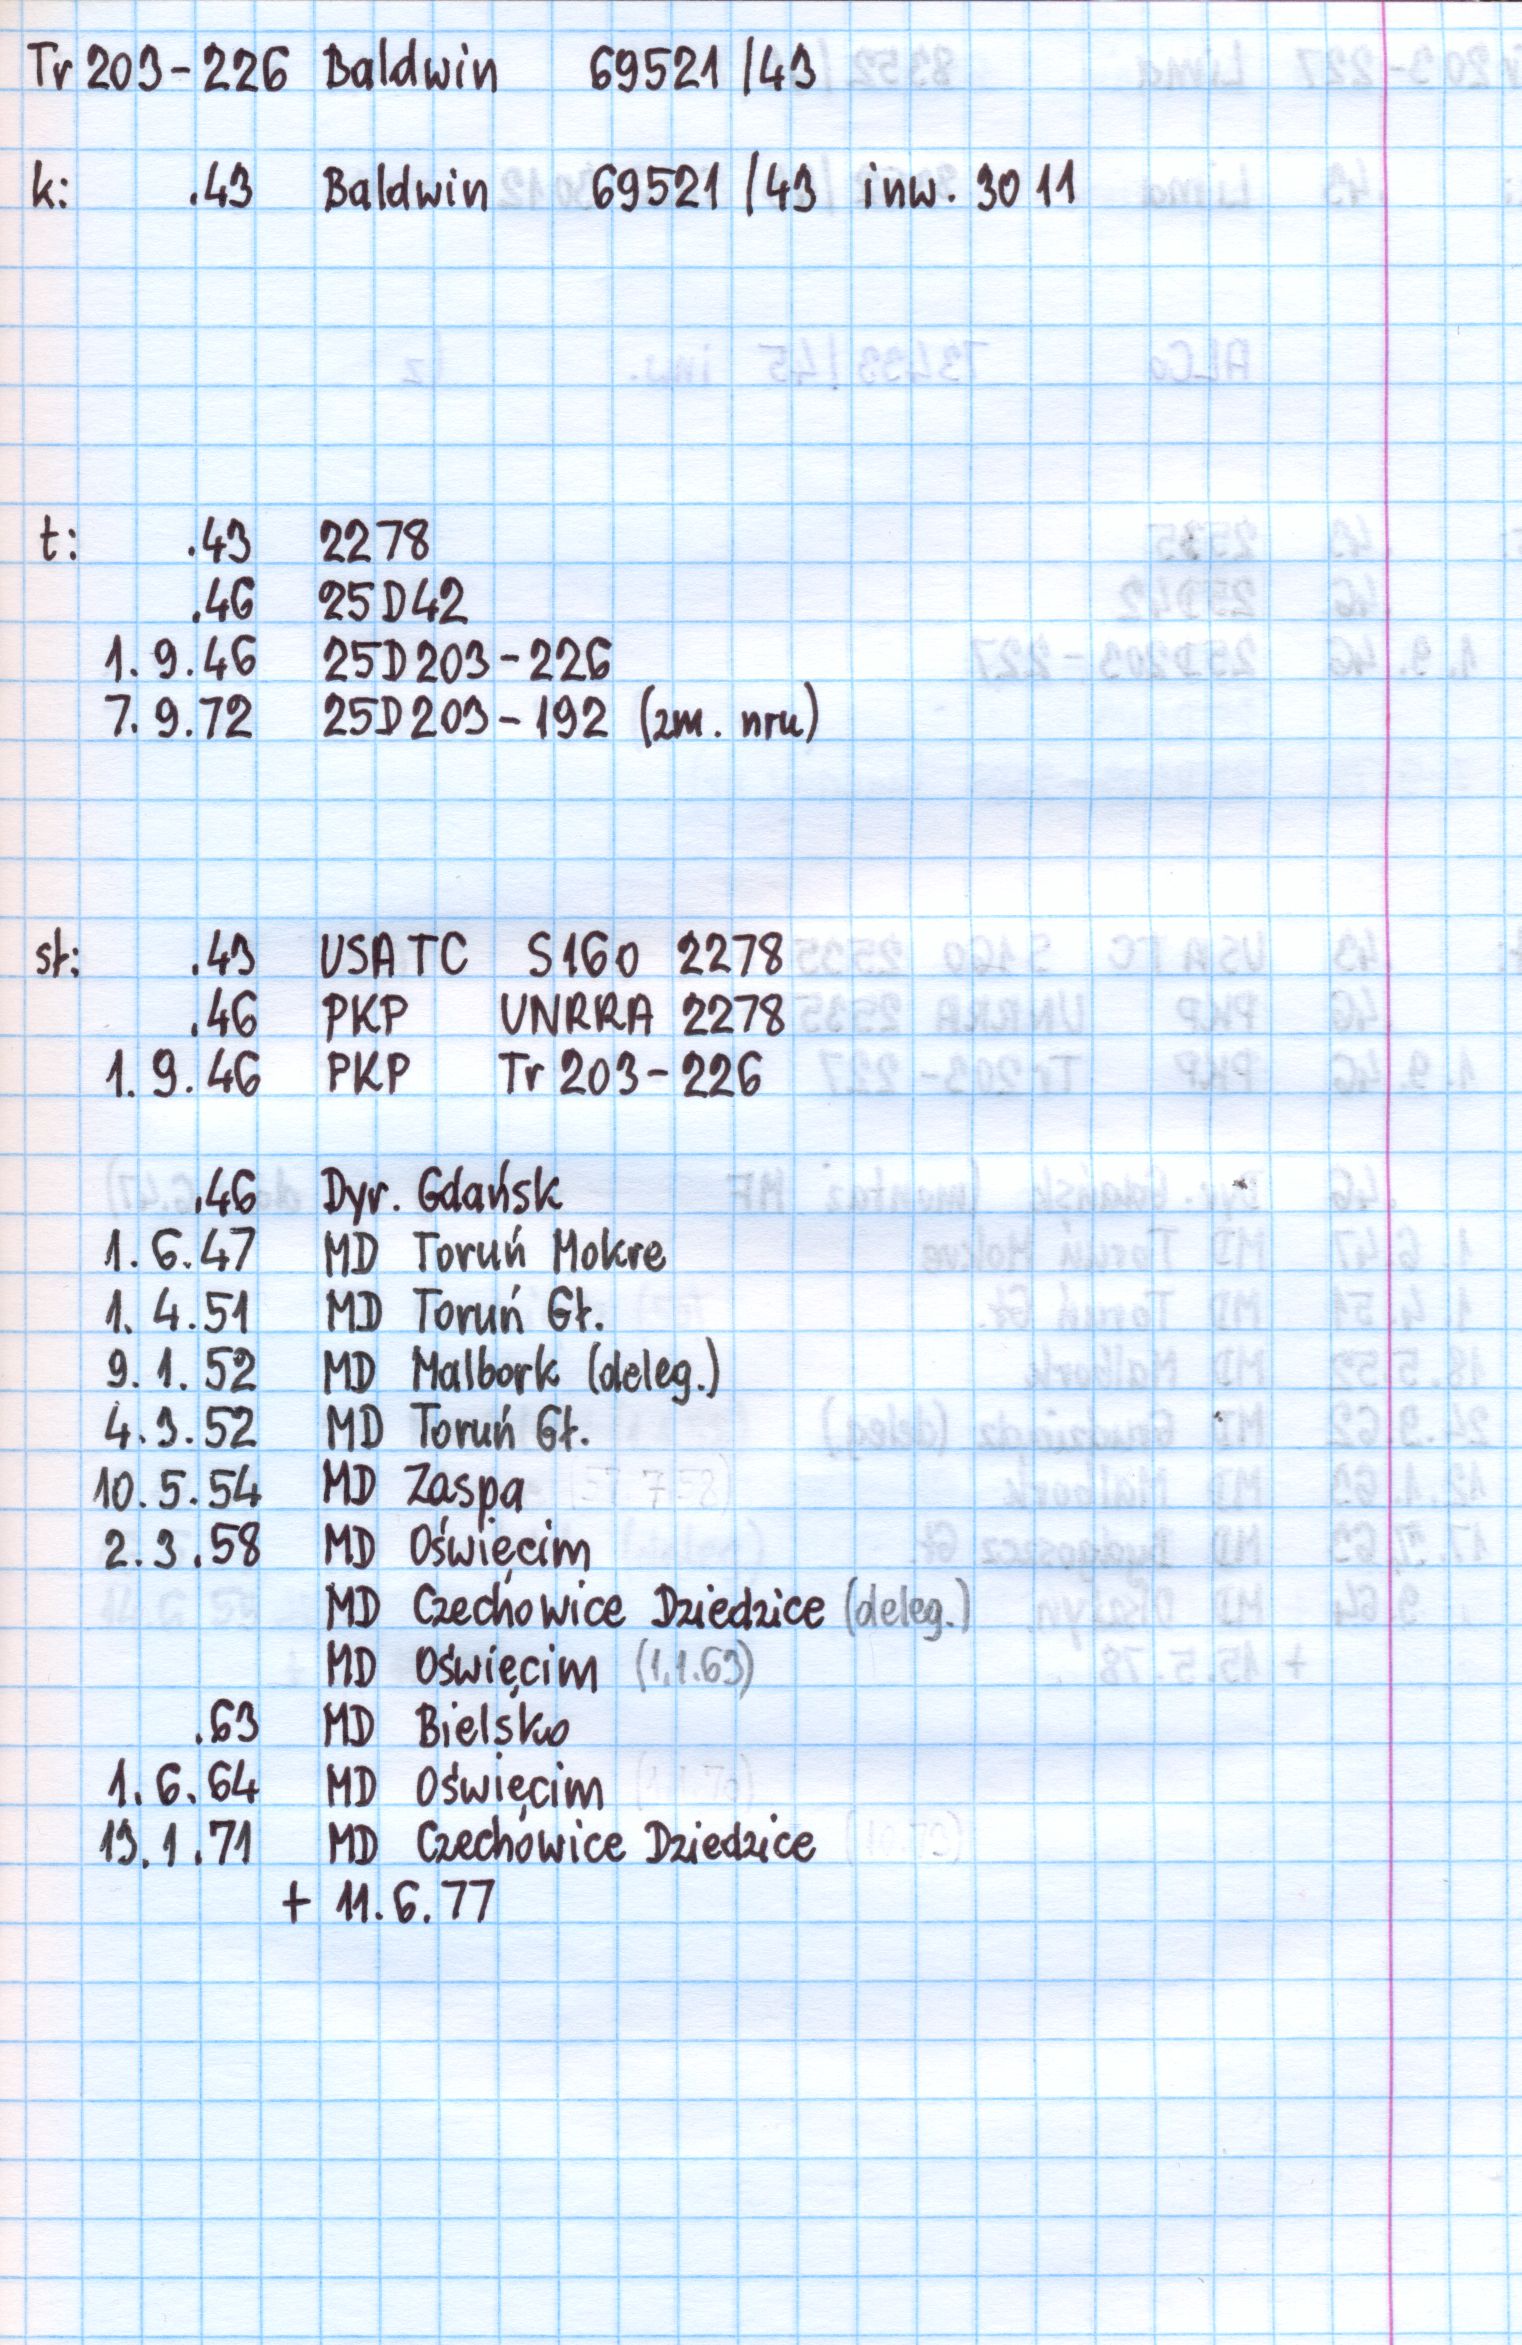 Tr 203-226 Baldwin 69521/43
k: .43 Baldwin 69521/43 inw. 3011
t: .43 2278
.46 25D42
1.9.46 25D203-226
7.9.72 25D203-192 (zm. nru)
st: .43 USATC S160 2278
.46 PKP UNRRA 2278
1.9.46 PKP Tr 203-226
.46 Dyr. Gdańsk
1.6.47 MD Toruń Mokre
1.4.51 MD Toruń Gł.
9.1.52 MD Malbork (deleg.)
4.3.52 MD Toruń Gł.
10.5.54 MD Zaspa
2.3.58 MD Oświęcim
MD Czechowice Dziedzice (deleg.)
MD Oświęcim (1.1.63)
.63 MD Bielsko
1.6.64 MD Oświęcim
13.1.71 MD Czechowice Dziedzice
+ 11.6.77